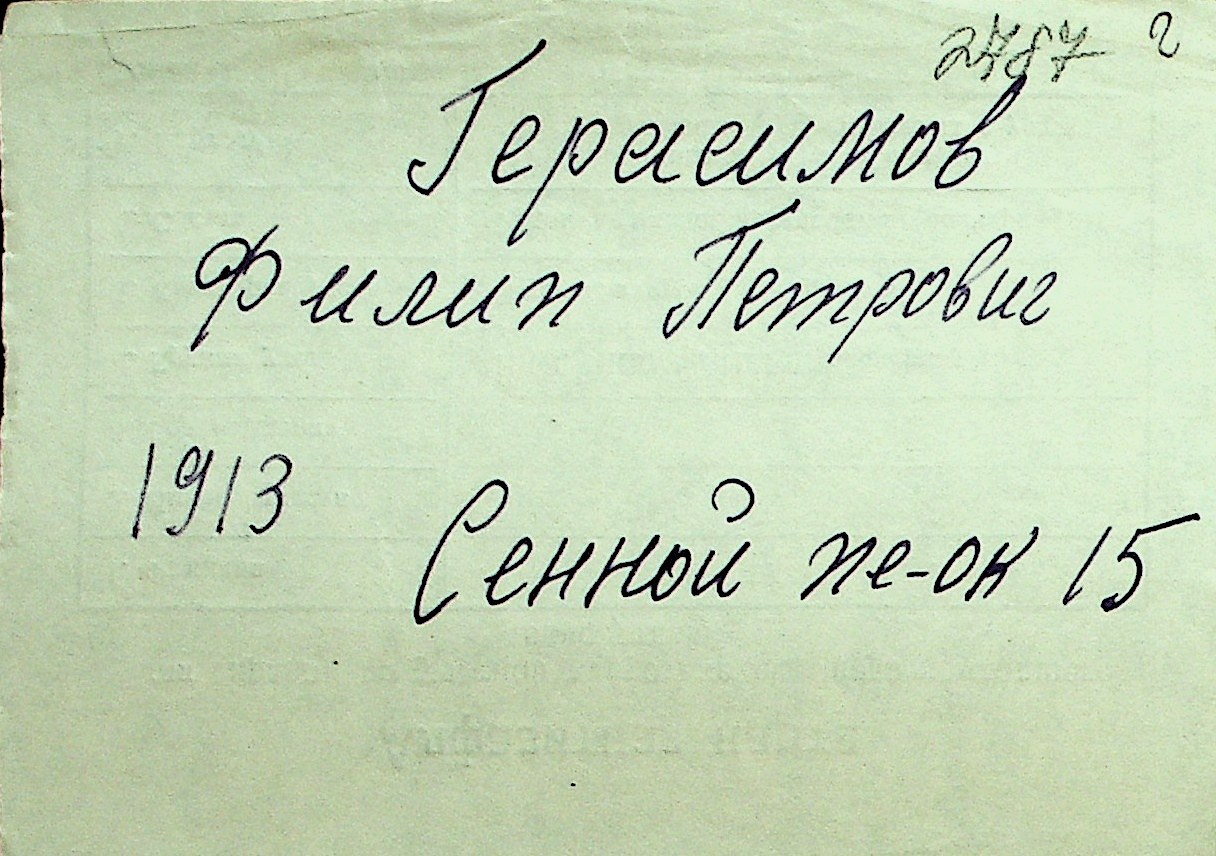 2787 г
Герасимов
Филип Петрович
1913
Сенной пе-ок 15